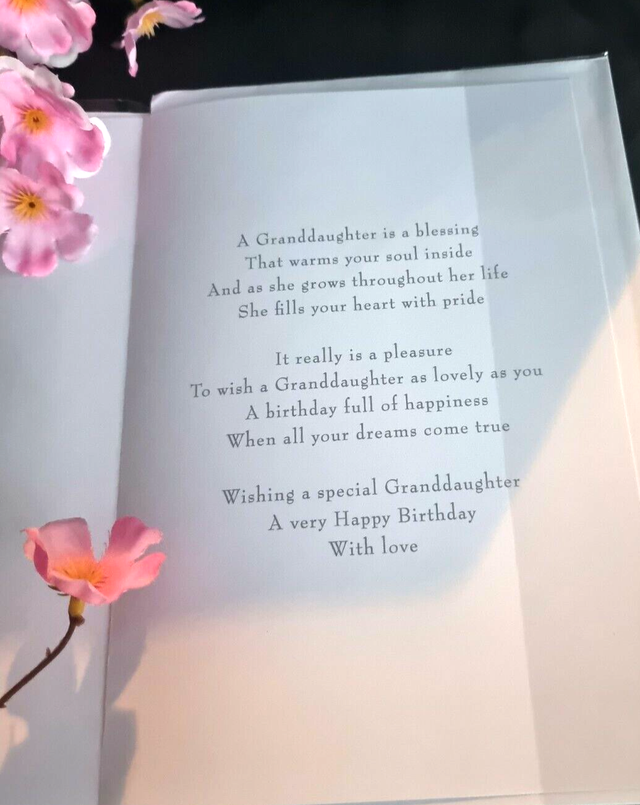 A Granddaughter is a blessing
That warms your soul inside
And as she grows throughout her life
She fills your heart with pride
It really is a pleasure
To wish a Granddaughter as lovely as you
A birthday full of happiness
When all your dreams come true
Wishing a special Granddaughter
A very Happy Birthday
With love